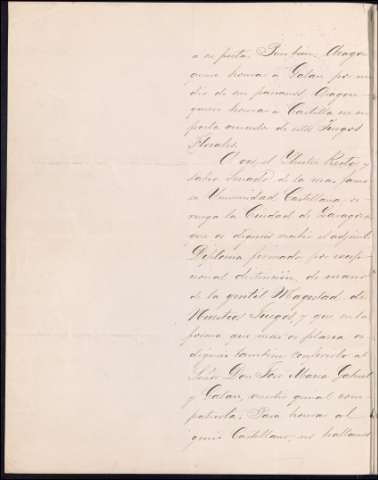 a su poeta. Pues bien, Aragon
quiere honrar a Galan por me
dio de un paisano. Aragon
quiere honrar a Castilla en su
poeta amado de estos Juegos
Florales.
A vos, el Ilustre Rector y
sabio Senado de la mas famo
sa Universidad Castellana, os
ruega la Ciudad de Zaragoza
que os digneis recibir el adjunto
Diploma firmado por excep
cional distincion, de mano
de la gentil Magestad de
Nuestros Juegos, y que en la
forma que mas os plazca os
digneis tambien conferirlo al
Señor Don Jose Maria Gabriel
y Galan, vuestro genial com
patriota. Para honrar al
genio Castellano, no hallamos